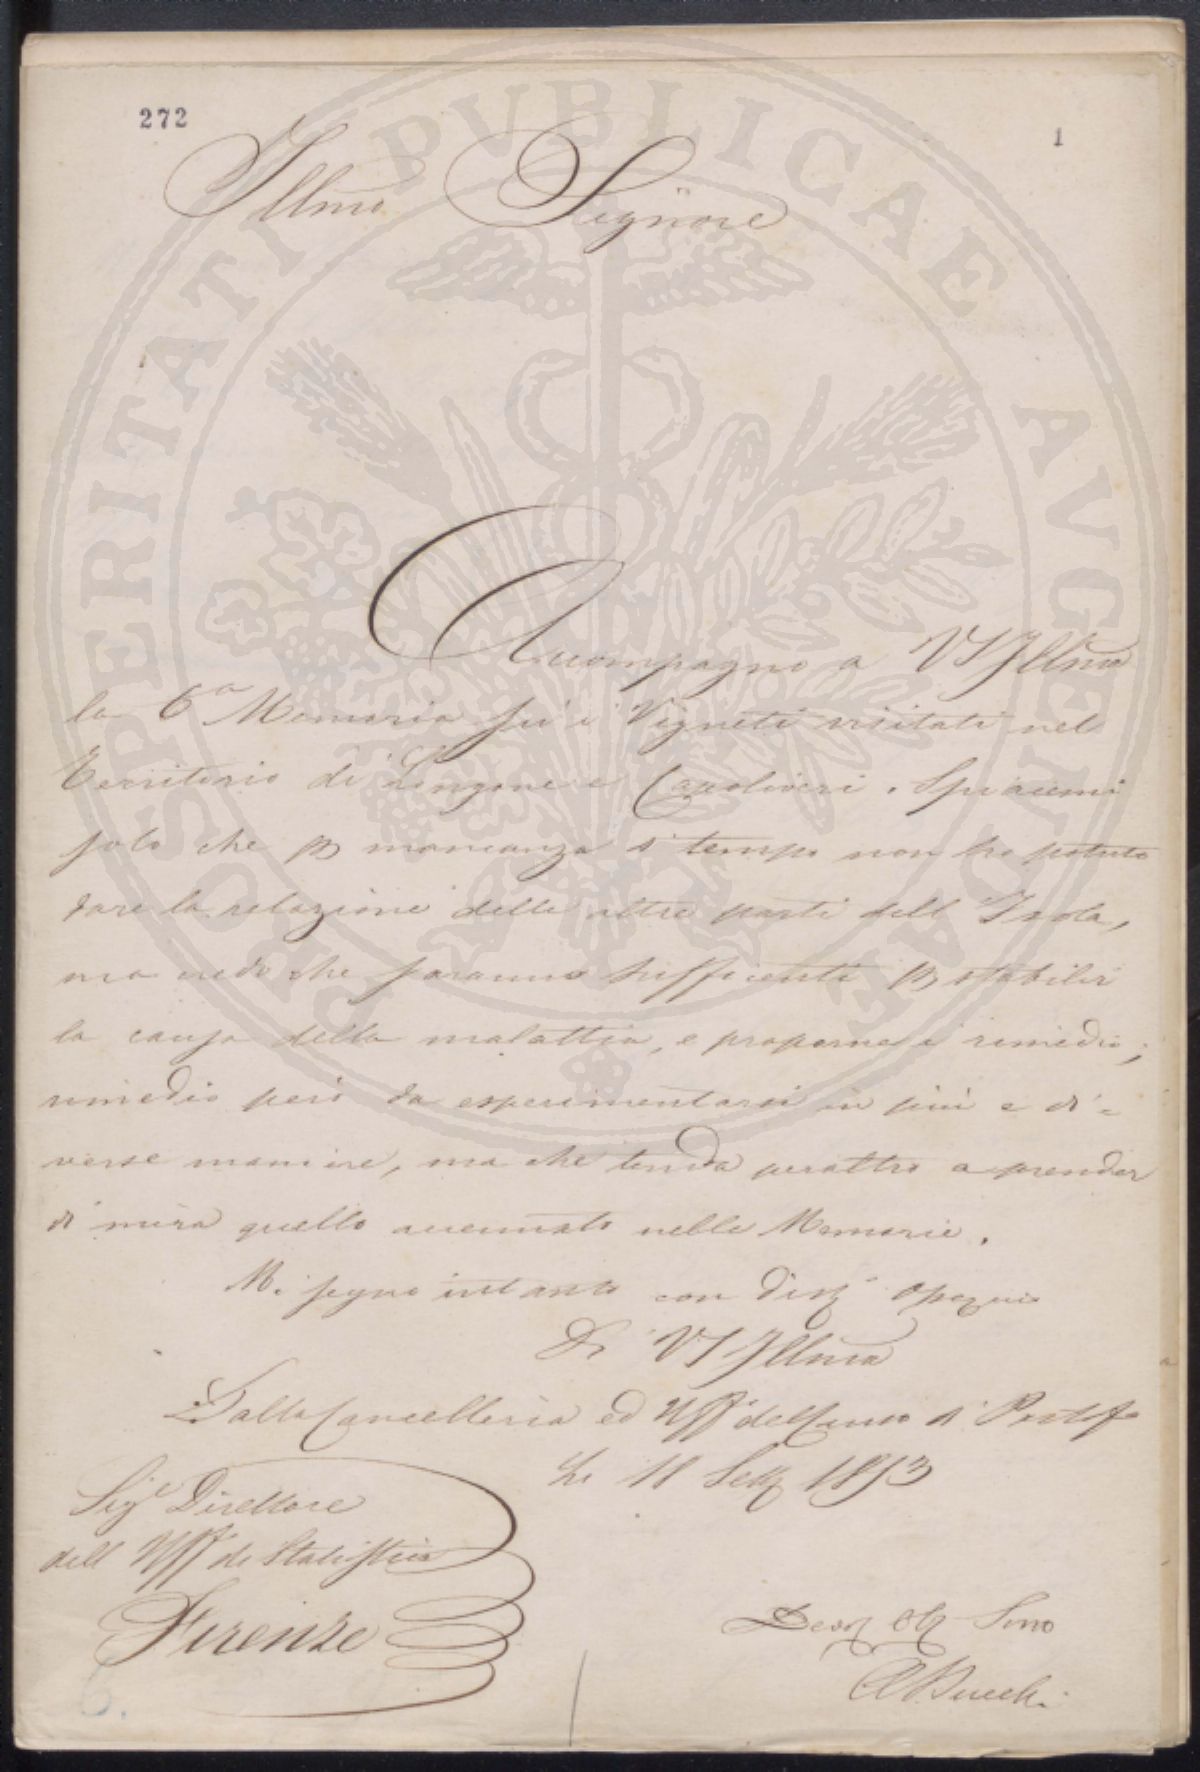 272
1
Illmo Signore
Accompagno a VS Illma
la 6a Memoria su i Vigneti visitati nel
Territorio di Longone e Capoliveri. Spiacemi
solo che p mancanza di tempo non ho potuto
dare la relazione delle altre parti dell'Isola,
ma credo che saranno sufficienti p stabilir
la causa della malattia, e proporne i rimedi;
rimedio però da esperimentarsi in più e di=
verse maniere, ma che tenda peraltro a prender
di mira quello accennato nelle Memorie.
Mi segno intanto con disto ossequio
Di VS Illma
Dalla Cancelleria ed Uffo del Censo di Portofo
Li 18 Sette 1853
Sige Direttore
dell Uffo di Statistica
Firenze
Devo Obo Servo
A Pucci
6.
PROSPERITATI PVBLICAE AVGENDAE